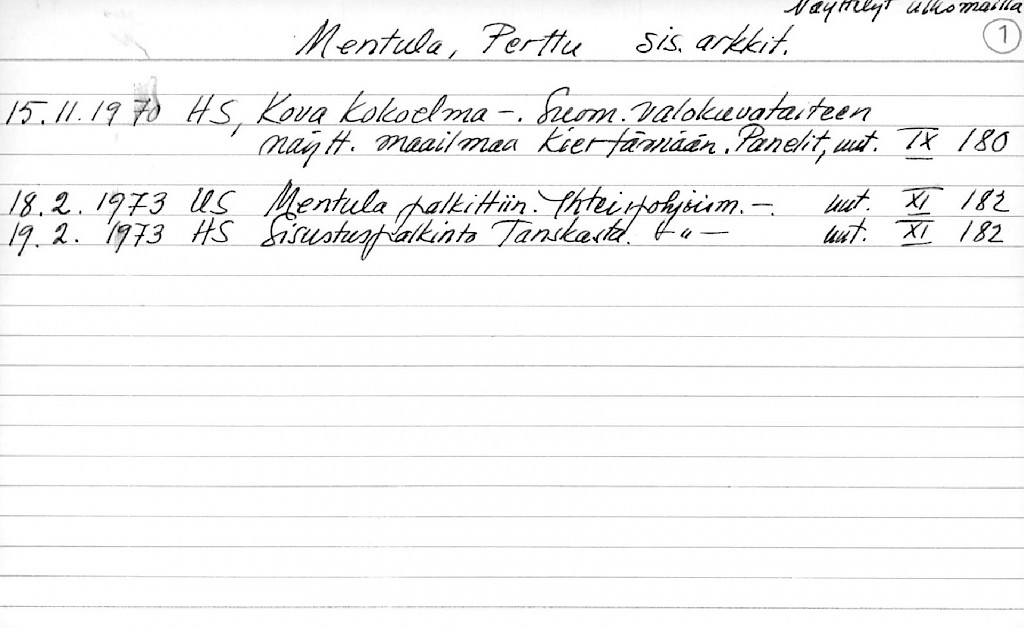 Näyttelyt ulkomailla
Mentula, Perttu sis. arkkit. 1
15.11.1970 HS, Kova kokoelma -. Suom. valokuvataiteen
näytt. maailmaa kiertämään. Panelit, uut. IX 180
18.2. 1973 US Mentula palkittiin. Yhteispohjoism. -. uut. XI 182
19.2. 1973 HS Sisustuspalkinto Tanskasta. -"- uut. XI 182